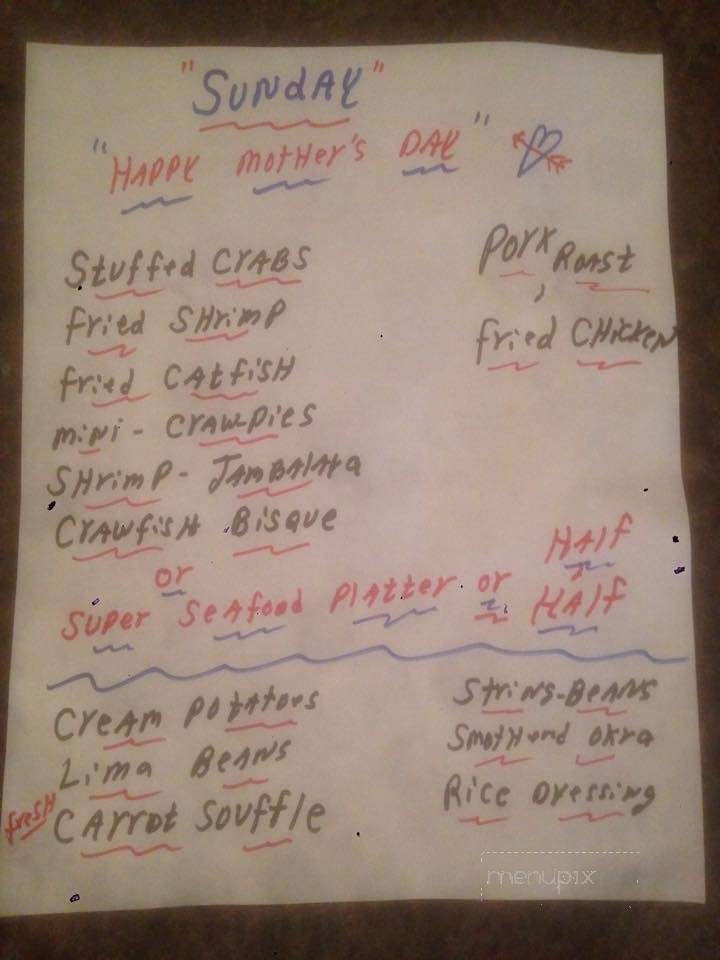 "SUNdAY"
"HAPPY motHer's DAY"
Stuffed CrABS
Pork Roast
fried SHrimP
fried CHicken
fried CAtfisH
mini - CrAwPies
SHrimP - JAmBAlAya
CrAwfisH Bisque
or
SuPer SeAfood PlAtter or HAlf
HAlf
CreAm PotAtoes
String-BeANS
Lima BeANS
SmotHered okra
fresH CArrot Souffle
Rice Dressing
menupix